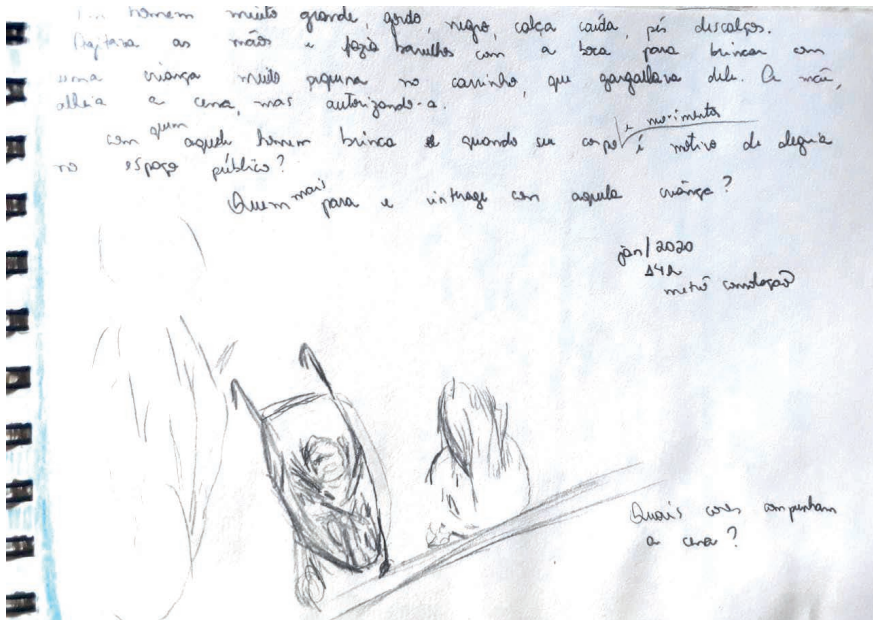 Um homem muito grande, gordo, negro, calça caída, pés descalços.
Agitava as mãos e fazia barulhos com a boca para brincar com
uma criança muito pequena no carrinho, que gargalhava dele. A mãe,
alheia a cena, mas autorizando-a.
Com quem aquele homem brinca e quando seu corpo e movimentos é motivo de alegria
no espaço público?
Quem mais para e interage com aquela criança?
jan/2020
14h
metrô consolação
Quais cores compunham
a cena?